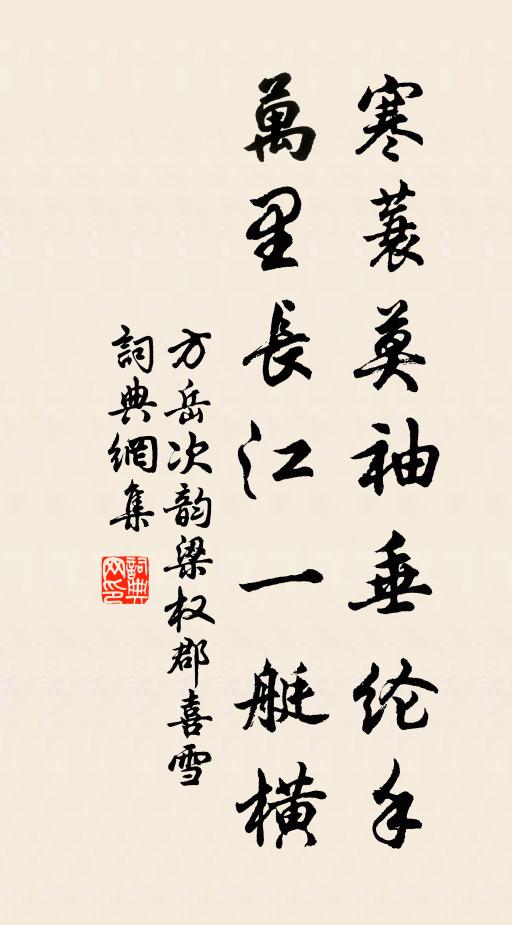 寒蓑莫袖垂纶手
萬里長江一艇橫
方岳次韵梁权郡喜雪
詞典網集
詞典網印